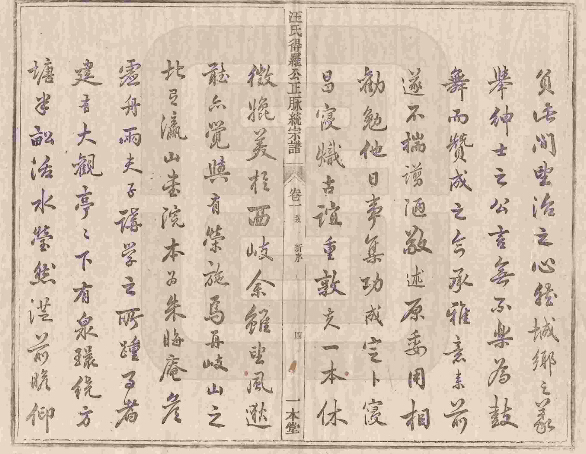 負咗閭望治之心經城鄉之義
舉紳士之公言無不樂為鼓
舞而贊成之今承雅意来前
遂不揣謭陋敬述原委用相
勸勉他日事集功成定卜寝
昌寝熾古誼重敦支一本休
汪氏得羅公正脉統宗譜
卷一
一本堂
微貔美於西岐余雖望風遜
聽亦覺與有榮施焉再岐山之
北有瀛山書院本為朱晦庵詹
虛舟兩夫子講學之所踵事者
建有大觀亭〻下有泉環繞方
塘半畝活水瑩然溢前瞻仰